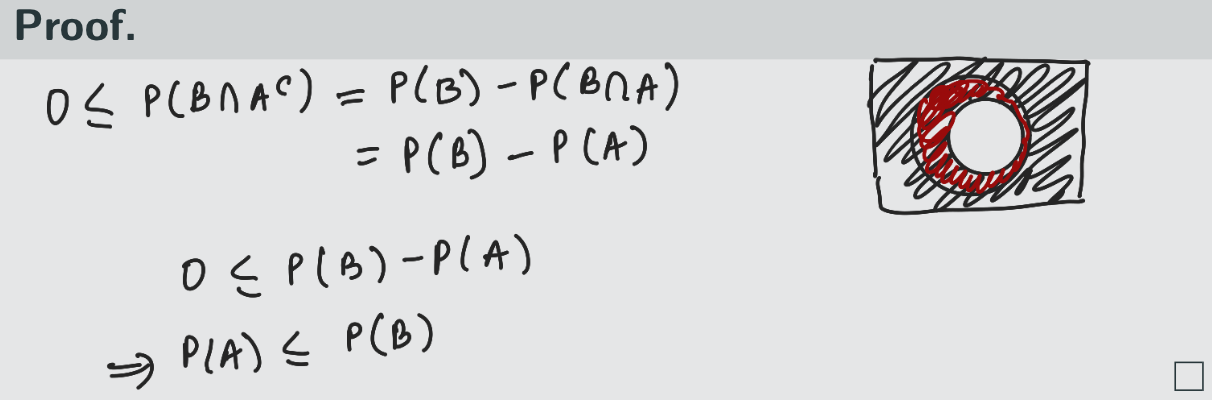 Proof.
0 ≤ P(B∩Aᶜ) = P(B) - P(B∩A)
= P(B) - P(A)
0 ≤ P(B) - P(A)
⇒ P(A) ≤ P(B)